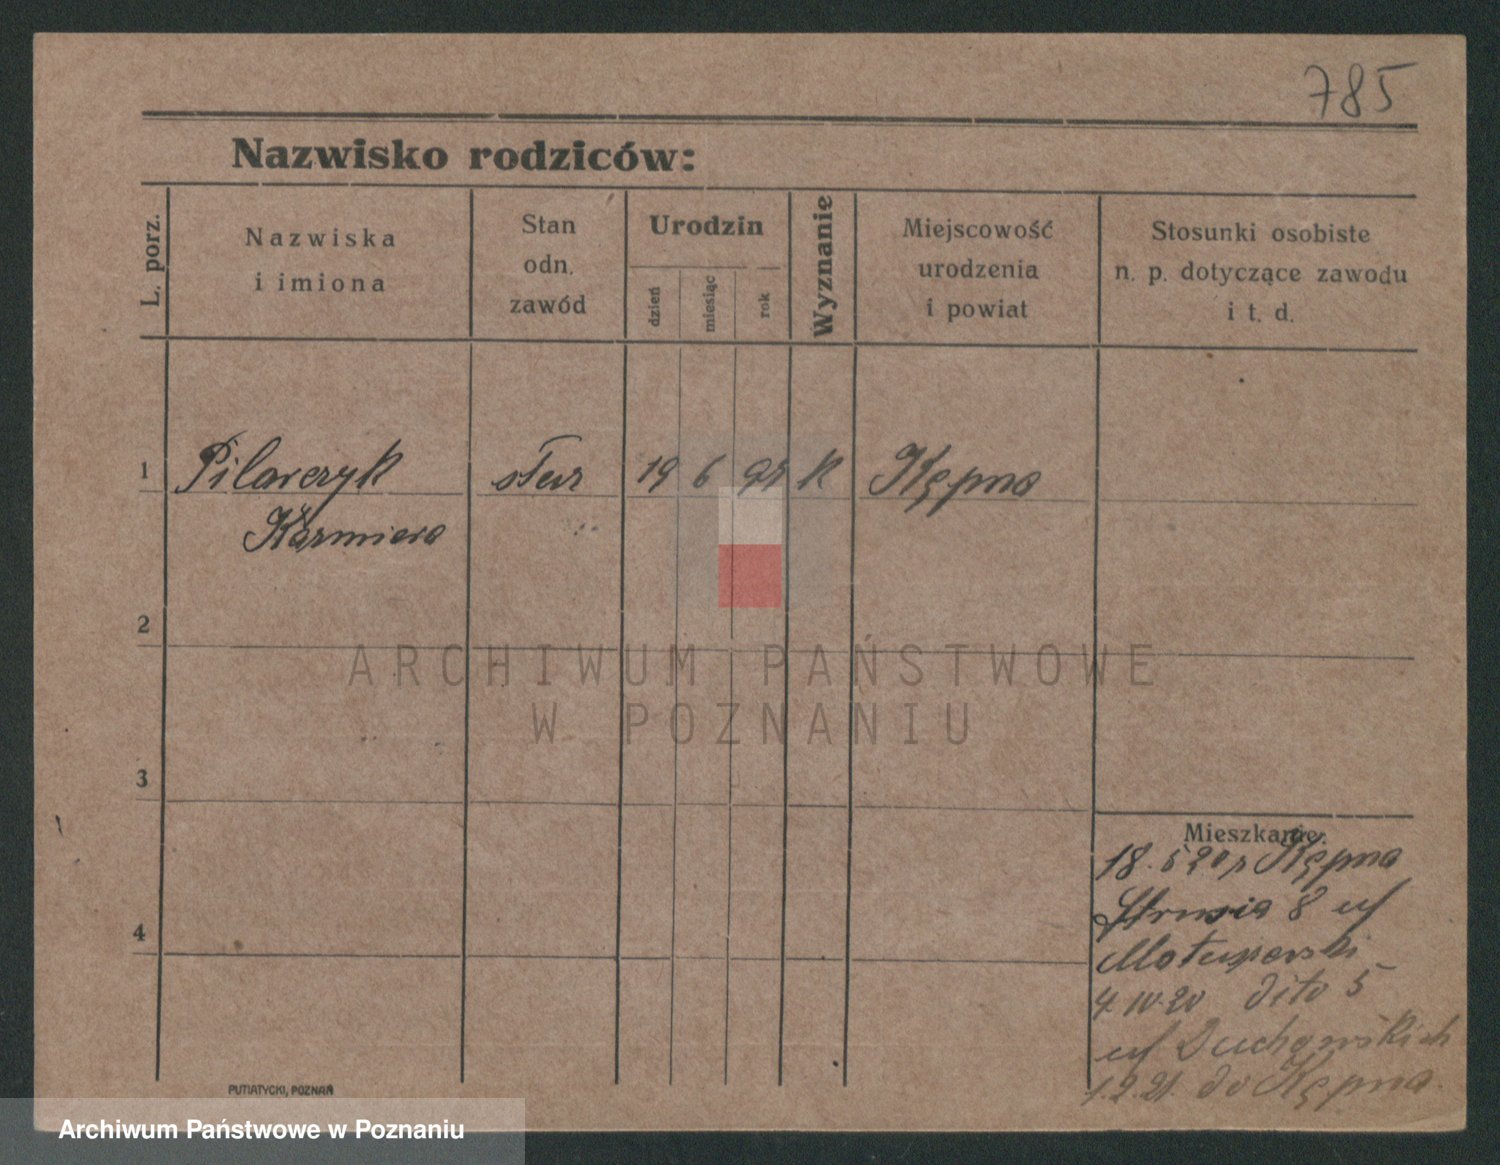 785
Nazwisko rodziców:
L. porz.
Nazwiska
i imiona
Stan
odn.
zawód
Urodzin
dzień
miesiąc
rok
Wyznanie
Miejscowość
urodzenia
i powiat
Stosunki osobiste
n. p. dotyczące zawodu
i t. d.
1 Pilarczyk 19 6 K Kępna
Kazmiera
2
ARCHIWUM PAŃSTWOWE
W POZNANIU
3
Mieszkanie:
18. 5 20 z Kępna
Strusia 8 uf
4
4. IV. 20 dito 5
uf
1. 2. 21. do Kępna.
PUTIATYCKI, POZNAŃ
Archiwum Państwowe w Poznaniu